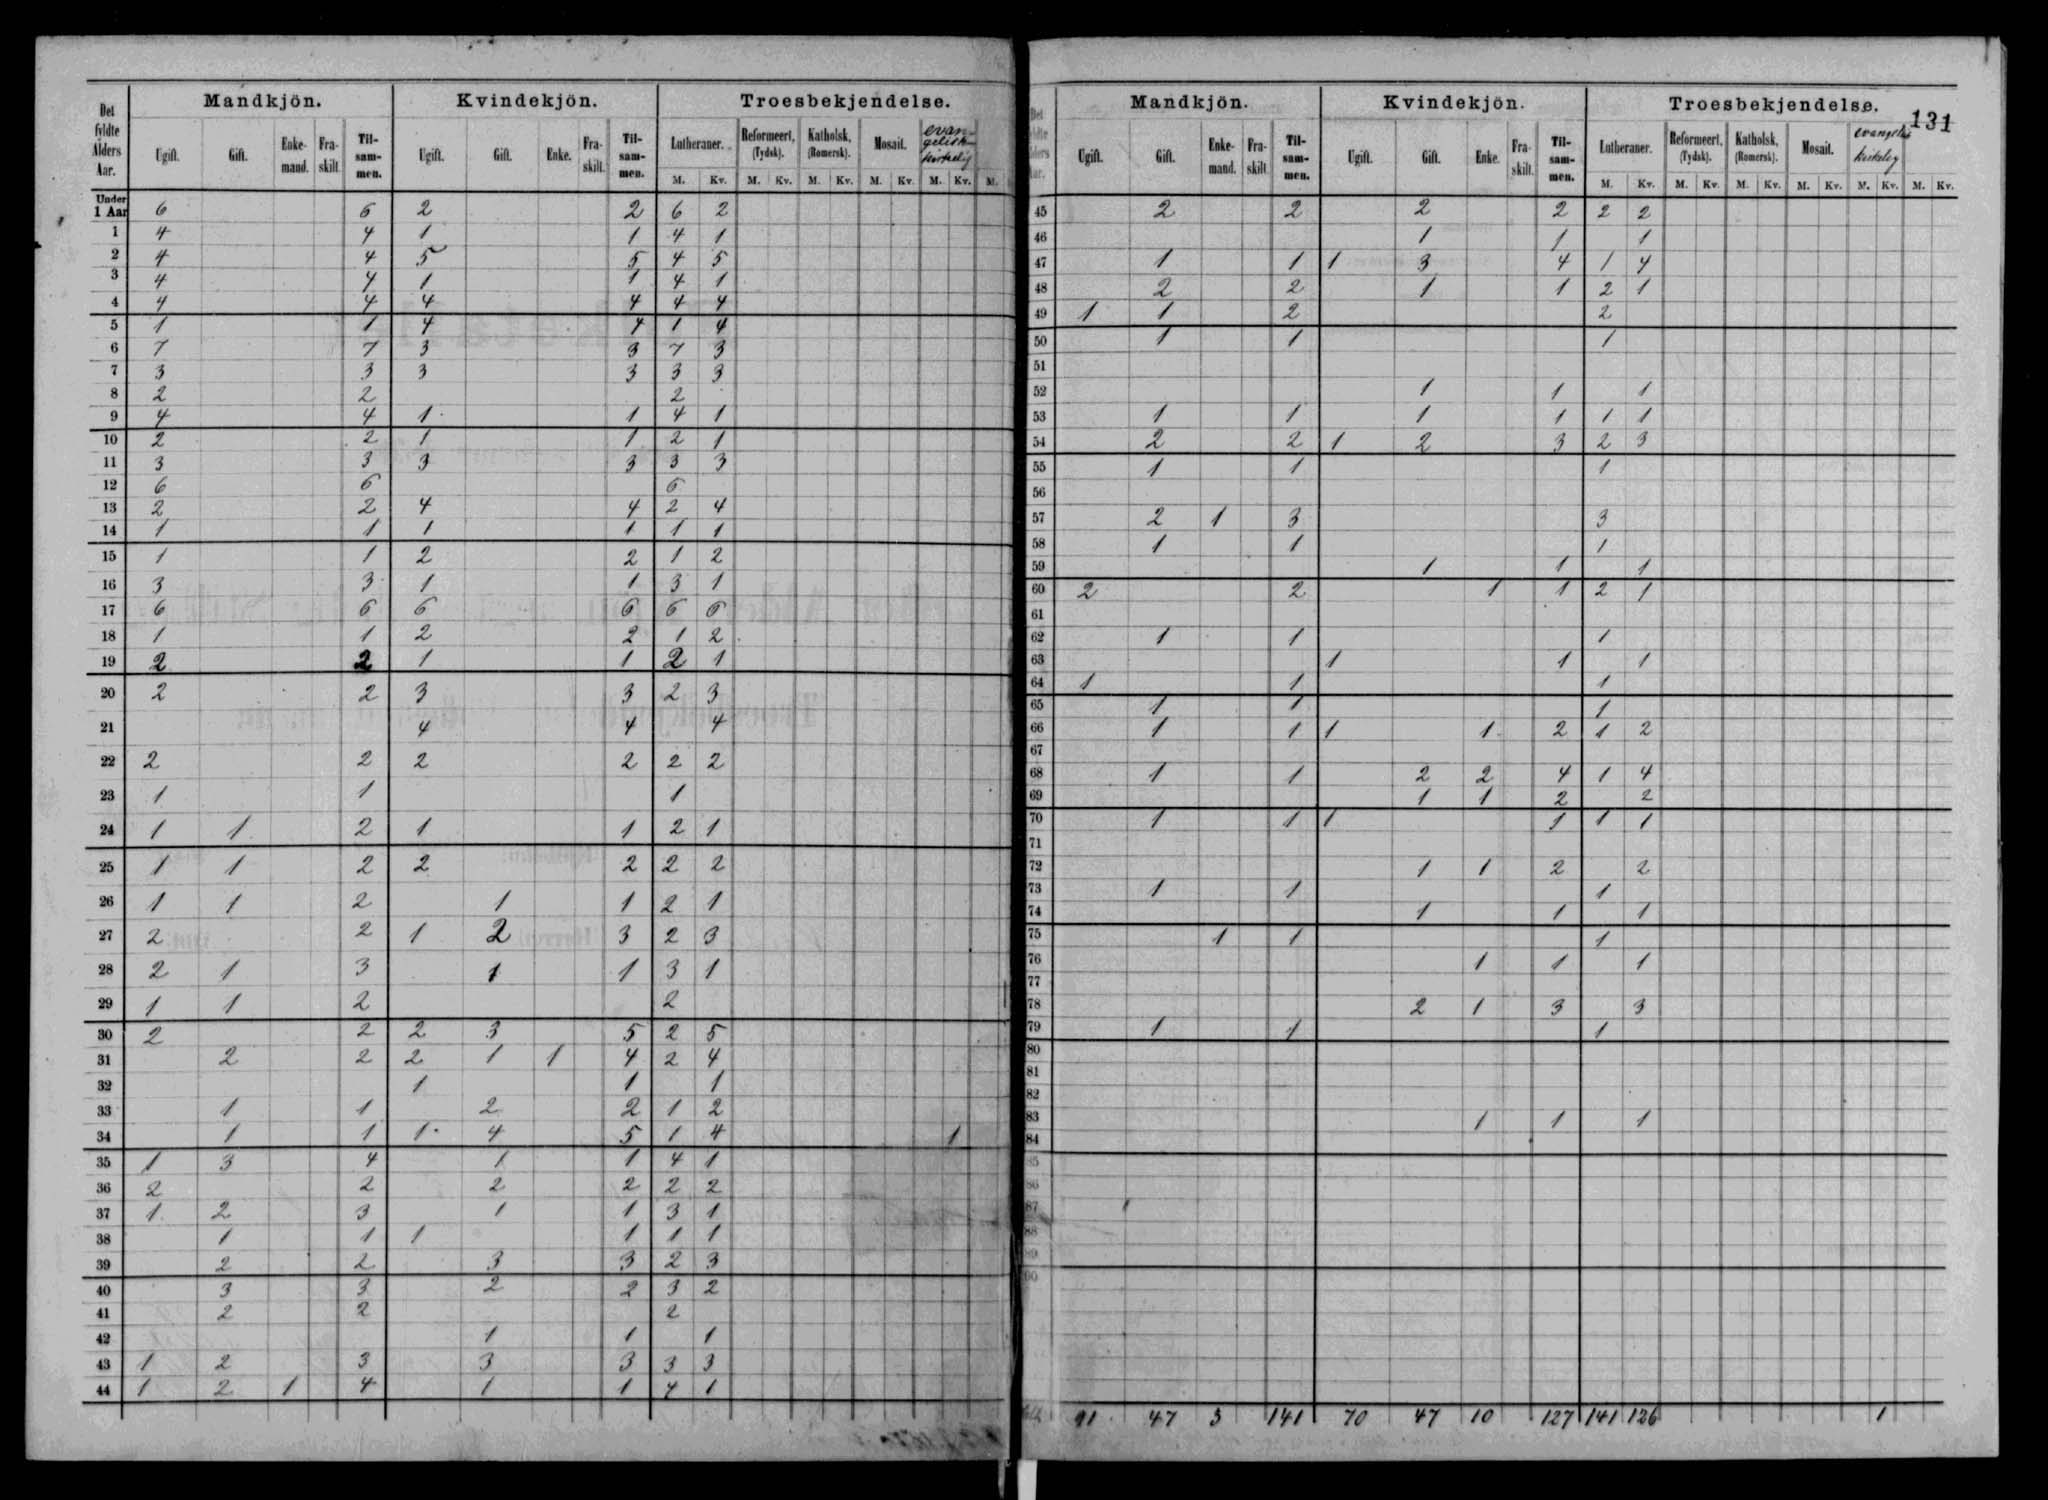 Mandkjön. Kvindekjön. Troesbekjendelse.
Det fyldte Alders Aar. Ugift. Gift. Enke-mand. Fra-skilt. Til-sam-men. Ugift. Gift. Enke. Fra-skilt. Til-sam-men. Lutheraner. Reformeert, (Tydsk). Katholsk, (Romersk). Mosait. evan-gelisk-kirkelig
M. Kv. M. Kv. M. Kv. M. Kv. M. Kv. M.
Under 1 Aar 6 6 2 2 6 2
1 4 4 1 1 4 1
2 4 4 5 5 4 5
3 4 4 1 1 4 1
4 4 4 4 4 4 4
5 1 1 4 4 1 4
6 7 7 3 3 7 3
7 3 3 3 3 3 3
8 2 2 2
9 4 4 1 1 4 1
10 2 2 1 1 2 1
11 3 3 3 3 3 3
12 6 6 6
13 2 2 4 4 2 4
14 1 1 1 1 1 1
15 1 1 2 2 1 2
16 3 3 1 1 3 1
17 6 6 6 6 6 6
18 1 1 2 2 1 2
19 2 2 1 1 2 1
20 2 2 3 3 2 3
21 4 4 4
22 2 2 2 2 2 2
23 1 1 1
24 1 1 2 1 1 2 1
25 1 1 2 2 2 2 2
26 1 1 2 1 1 2 1
27 2 2 1 2 3 2 3
28 2 1 3 1 1 3 1
29 1 1 2 2
30 2 2 2 3 5 2 5
31 2 2 2 1 1 4 2 4
32 1 1 1
33 1 1 2 2 1 2
34 1 1 1 4 5 1 4 1
35 1 3 4 1 1 4 1
36 2 2 2 2 2 2
37 1 2 3 1 1 3 1
38 1 1 1 1 1 1
39 2 2 3 3 2 3
40 3 3 2 2 3 2
41 2 2 2
42 1 1 1
43 1 2 3 3 3 3 3
44 1 2 1 4 1 1 4 1
131
Mandkjön. Kvindekjön. Troesbekjendelse.
Ugift. Gift. Enke-mand. Fra-skilt. Til-sam-men. Ugift. Gift. Enke. Fra-skilt. Til-sam-men. Lutheraner. Reformeert, (Tydsk). Katholsk, (Romersk). Mosait. kirkelig
M. Kv. M. Kv. M. Kv. M. Kv. M. Kv. M. Kv.
45 2 2 2 2 2 2
46 1 1 1
47 1 1 1 3 4 1 4
48 2 2 1 1 2 1
49 1 1 2 2
50 1 1 1
51
52 1 1 1
53 1 1 1 1 1 1
54 2 2 1 2 3 2 3
55 1 1 1
56
57 2 1 3 3
58 1 1 1
59 1 1 1
60 2 2 1 1 2 1
61
62 1 1 1
63 1 1 1
64 1 1 1
65 1 1 1
66 1 1 1 1 2 1 2
67
68 1 1 2 2 4 1 4
69 1 1 2 2
70 1 1 1 1 1 1
71
72 1 1 2 2
73 1 1 1
74 1 1 1
75 1 1 1
76 1 1 1
77
78 2 1 3 3
79 1 1 1
80
81
82
83 1 1 1
84
85
86
87
88
89
90
91 47 3 141 70 47 10 127 141 126 1